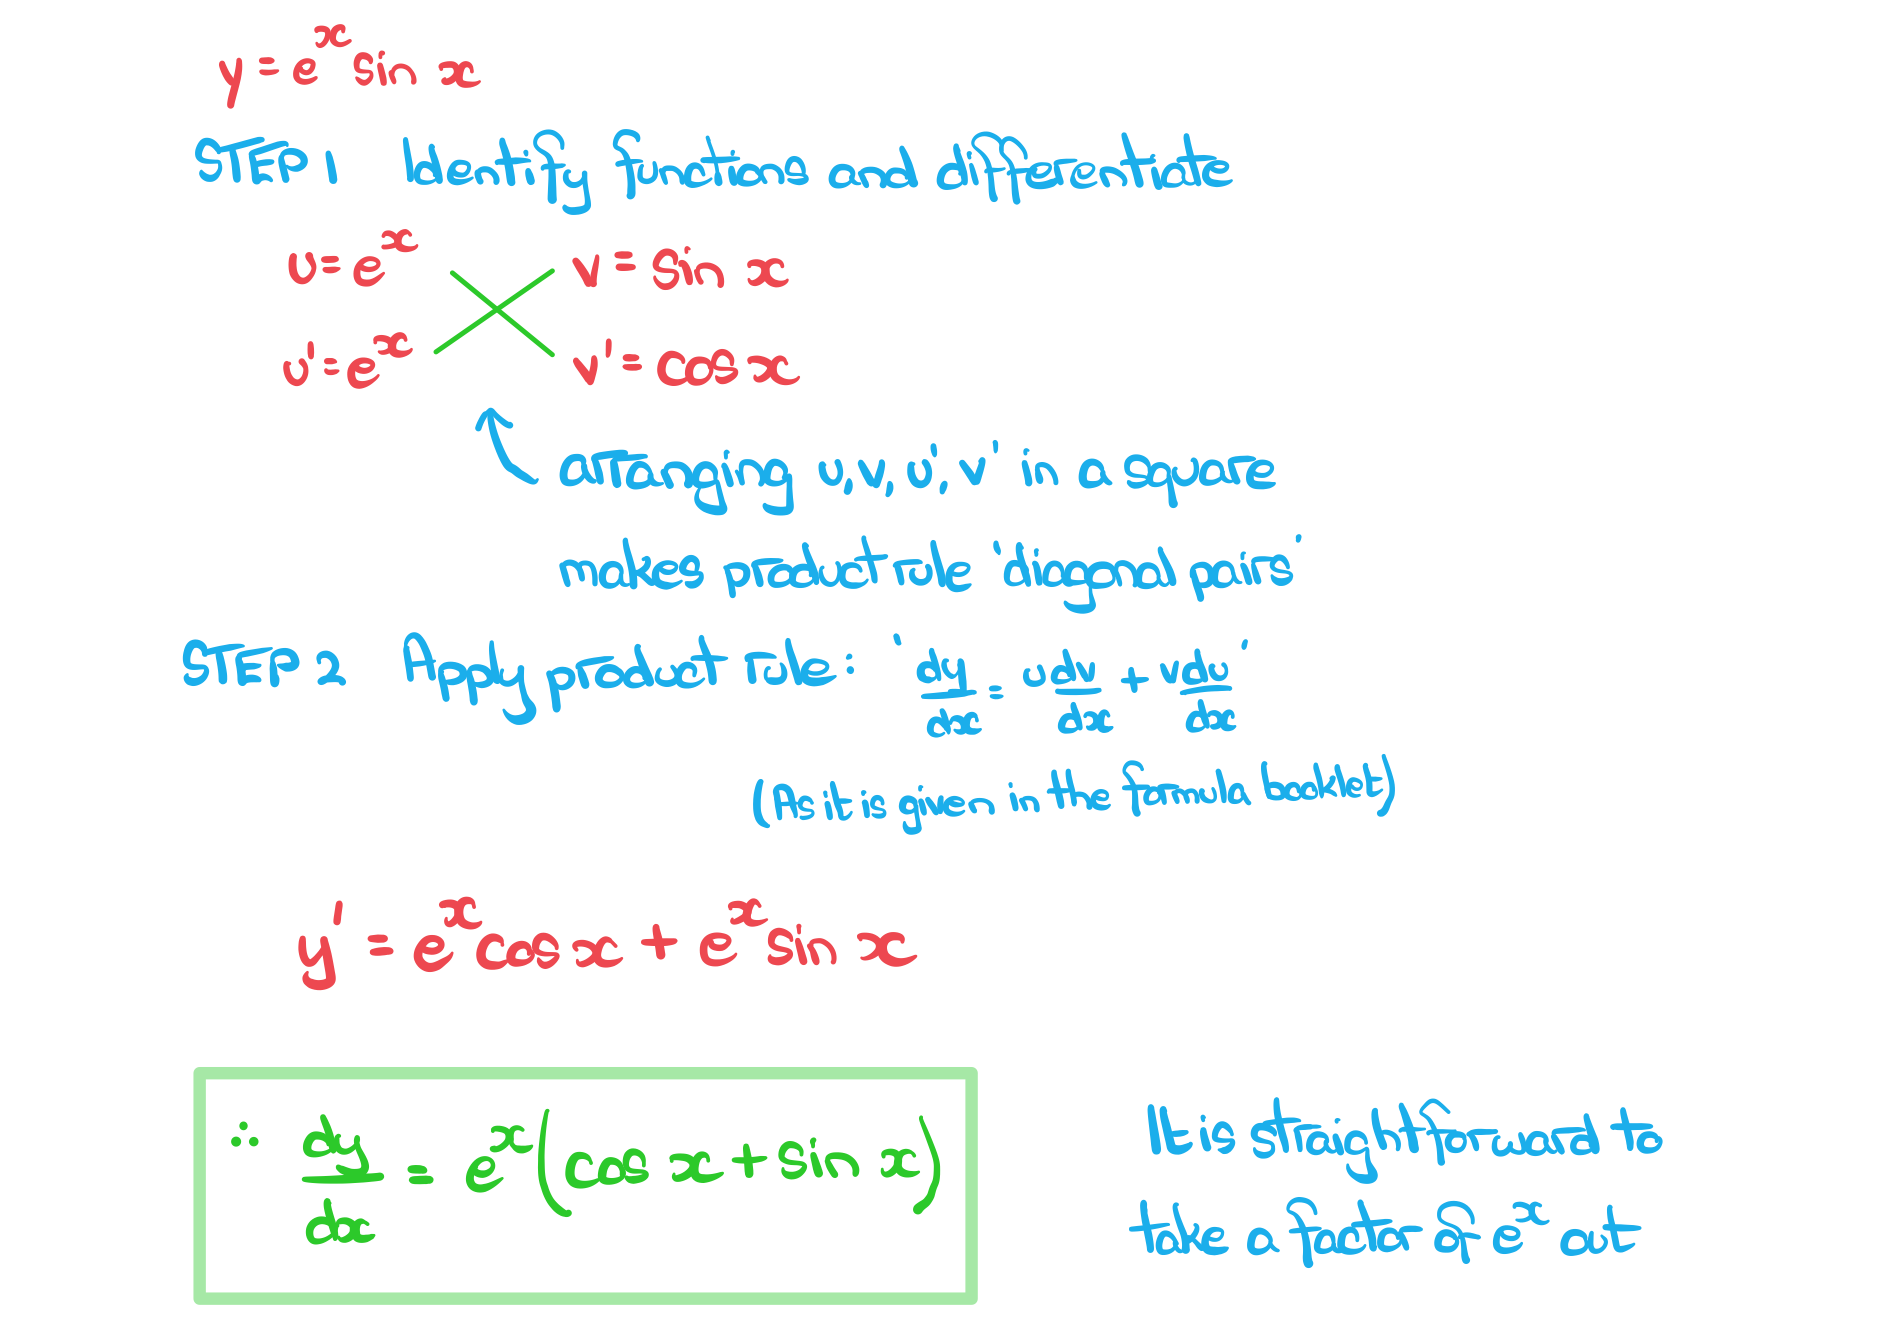 y = eˣ sin x
STEP 1 Identify functions and differentiate
u = eˣ v = sin x
u' = eˣ v' = cos x
arranging u, v, u', v' in a square
makes product rule 'diagonal pairs'
STEP 2 Apply product rule: 'dy/dx = u dv/dx + v du/dx'
(As it is given in the formula booklet)
y' = eˣ cos x + eˣ sin x
∴ dy/dx = eˣ(cos x + sin x)
It is straightforward to
take a factor of eˣ out